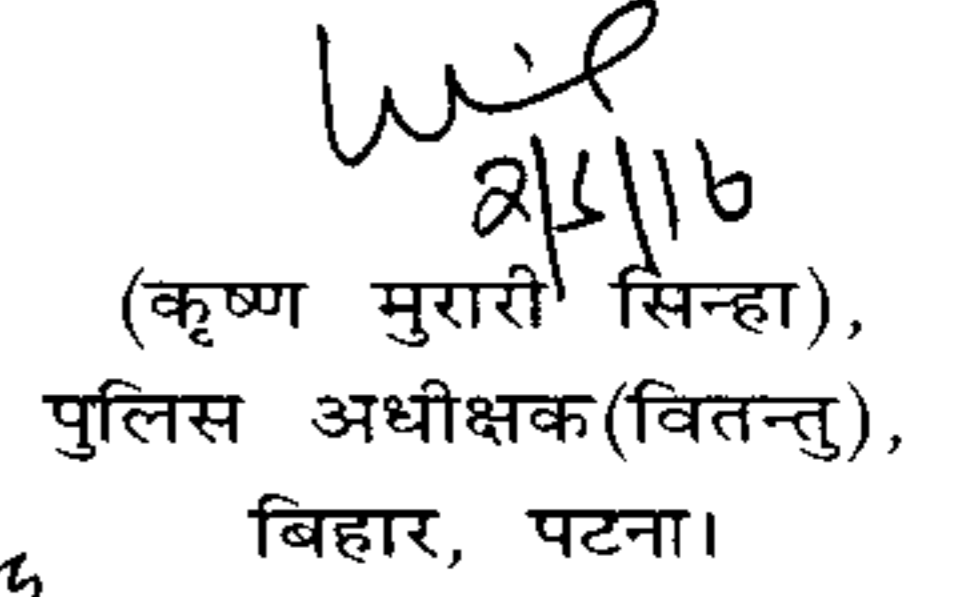 2/5/16
(कृष्ण मुरारी सिन्हा),
पुलिस अधीक्षक(वितन्तु),
बिहार, पटना।